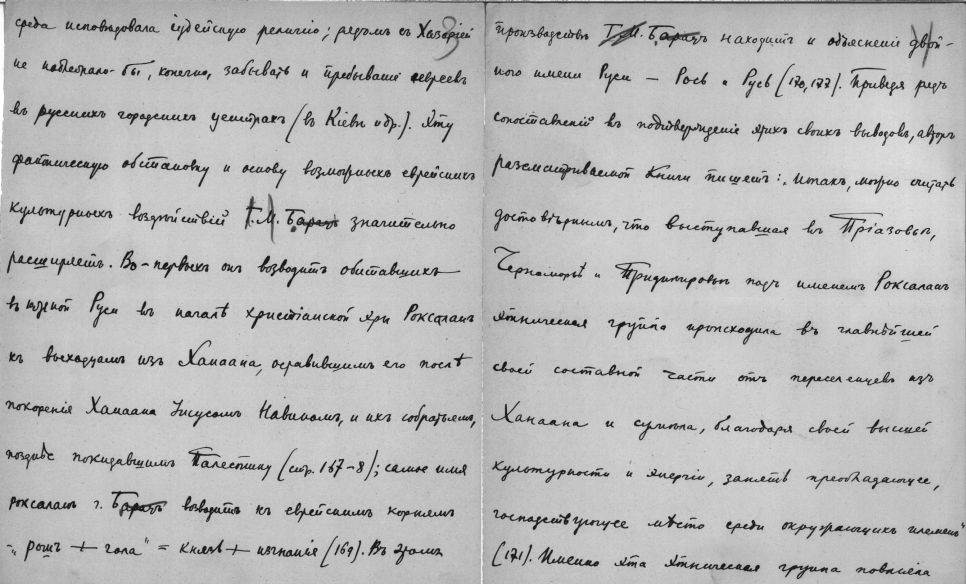 среда исповѣдовала іудейскую религію; рядомъ съ Хазаріей
не подлежало-бы, конечно, забывать и пребываніе евреевъ
въ русскихъ городскихъ центрахъ (въ Кіевѣ и др.). Эту
фактическую обстановку и основу возможныхъ еврейскихъ
культурныхъ воздѣйствій Г. М. Барацъ значительно
расширяетъ. Во-первыхъ онъ возводитъ обитавшихъ
въ южной Руси въ началѣ христіанской эры Роксаланъ
къ выходцамъ изъ Ханаана, оставившимъ его послѣ
покоренія Ханаана Іисусомъ Навиномъ, и ихъ собратьямъ,
позднѣе покидавшимъ Палестину (стр. 167-8); самое имя
роксаланъ г. Барацъ возводитъ къ еврейскимъ корнямъ
-„рошъ + гола" = князь + изгнанія (169). Въ этомъ
производствѣ Г. М. Барацъ находитъ и объясненіе двой-
ного имени Руси — Рось и Русь (170, 177). Приведя рядъ
сопоставленій въ подтвержденіе этихъ своихъ выводовъ, авторъ
разсматриваемой книги пишетъ: „Итакъ, можно считать
достовѣрнымъ, что выступавшая въ Пріазовьѣ,
Черноморьѣ и Приднѣпровьѣ подъ именемъ Роксаланъ
этническая группа происходила въ главнѣйшей
своей составной части отъ переселенцевъ изъ
Ханаана и сумѣла, благодаря своей высшей
культурности и энергіи, занять преобладающее,
господствующее мѣсто среди окружающихъ племенъ"
(171). Именно эта этническая группа повлияла